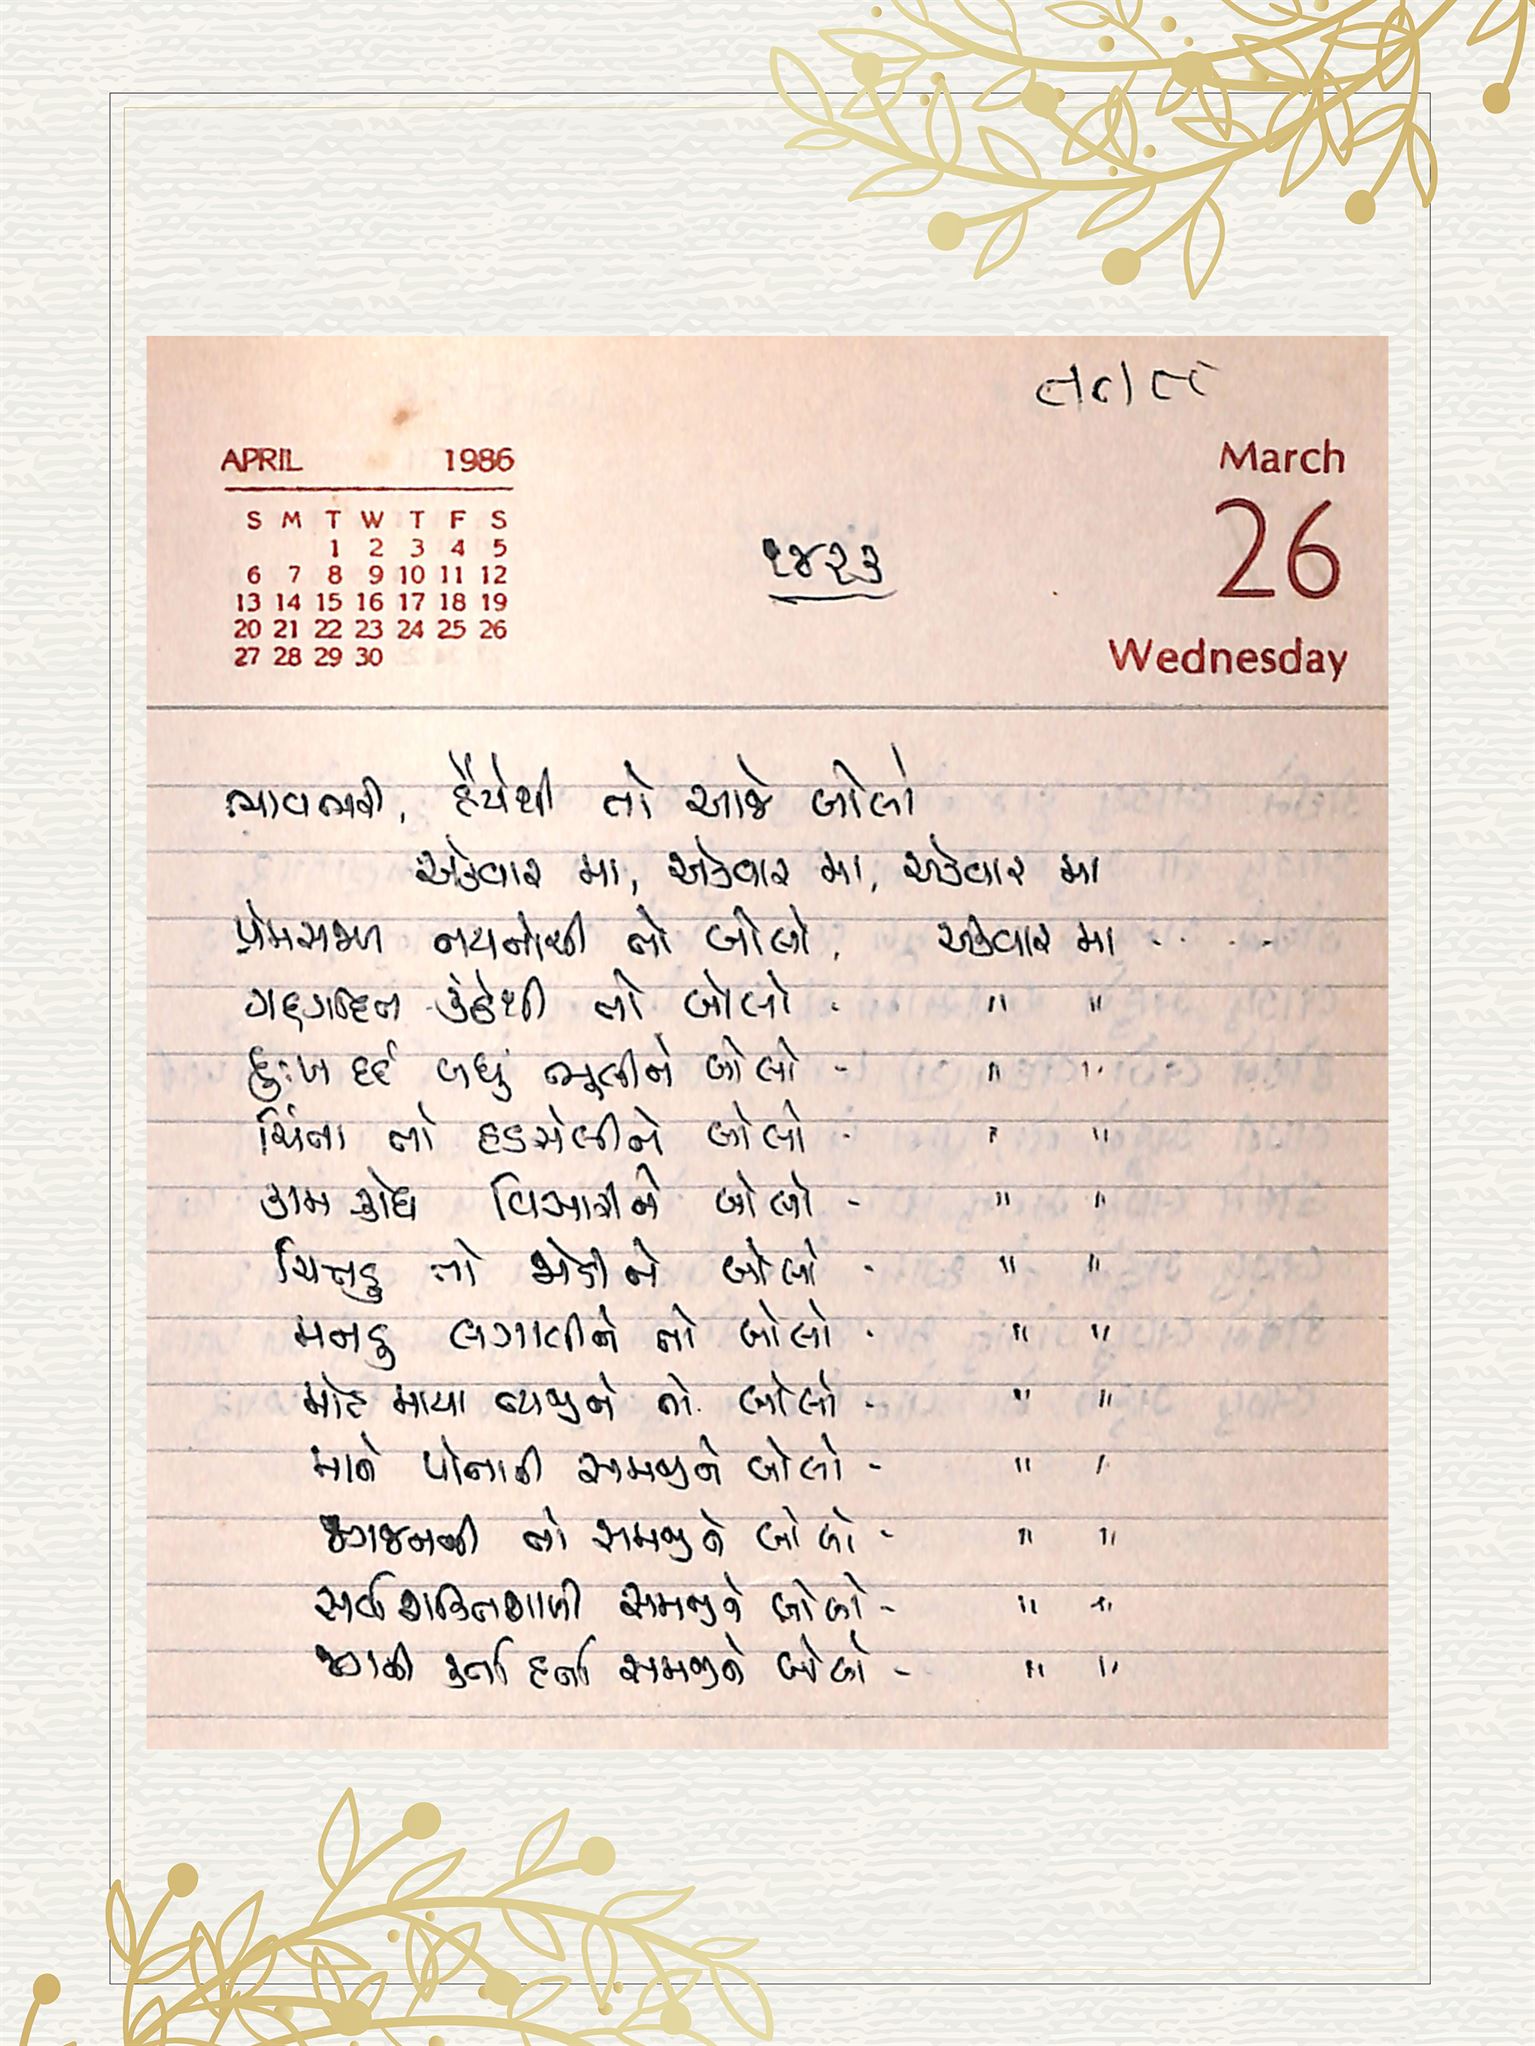 APRIL 1986
S M T W T F S
1 2 3 4 5
6 7 8 9 10 11 12
13 14 15 16 17 18 19
20 21 22 23 24 25 26
27 28 29 30
૧૪૨૩
March
26
Wednesday
ભાવભરી, હૈયેથી તો આજે બોલો
એકવાર મા, એકવાર મા, એકવાર મા
પ્રેમસભળ નયનોથી તો બોલો, એકવાર મા . . . .
ગદ્ગદિત કંઠેથી તો બોલો - " "
દુઃખ દર્દ બધું ભૂલીને બોલો - " "
ચિંતા તો હડસેલીને બોલો - " "
કામ ક્રોધ વિસારીને બોલો - " "
ચિત્તડુ તો જોડીને બોલો - " "
મનડુ લગાવીને તો બોલો - " "
મોહ માયા ત્યજીને તો બોલો - " "
માને પોતાની સમજીને બોલો - " "
જગજનની તો સમજીને બોલો - " "
સર્વ શક્તિશાળી સમજીને બોલો - " "
જગની કર્તા હર્તા સમજીને બોલો - " "